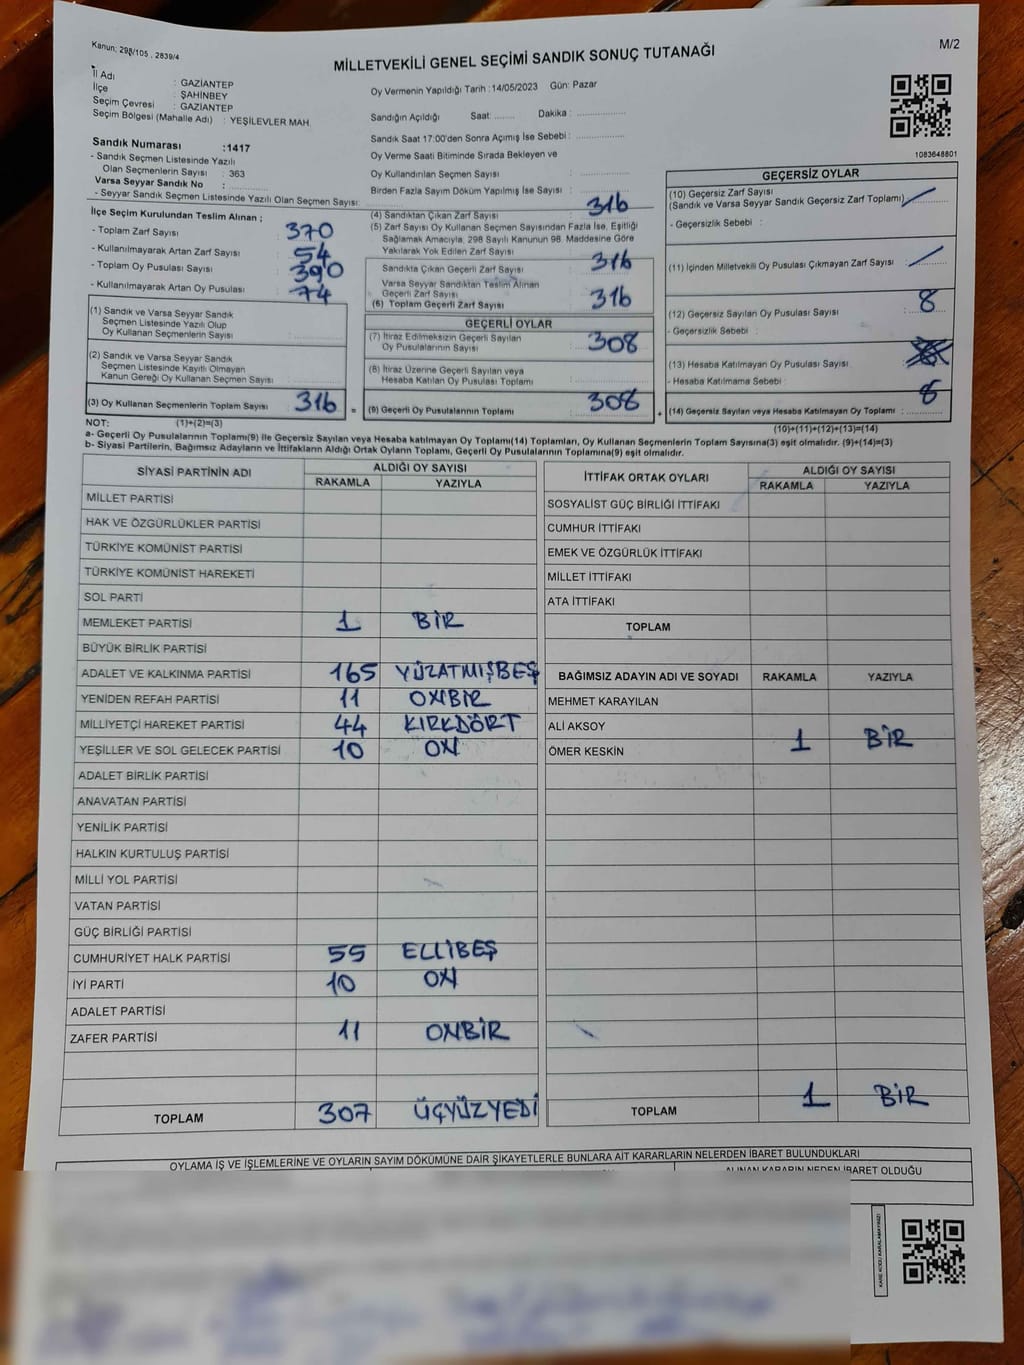 Kanun; 298/105 , 2839/4
M/2
MİLLETVEKİLİ GENEL SEÇİMİ SANDIK SONUÇ TUTANAĞI
İl Adı : GAZİANTEP
İlçe : ŞAHİNBEY
Seçim Çevresi : GAZİANTEP
Seçim Bölgesi (Mahalle Adı) : YEŞİLEVLER MAH.
Oy Vermenin Yapıldığı Tarih :14/05/2023 Gün: Pazar
Sandığın Açıldığı Saat: ........ Dakika : ..................
Sandık Saat 17:00'den Sonra Açımış İse Sebebi : ..................
Oy Verme Saati Bitiminde Sırada Bekleyen ve
Oy Kullandırılan Seçmen Sayısı : ..................
Birden Fazla Sayım Döküm Yapılmış İse Sayısı : ..................
1083648801
Sandık Numarası :1417
- Sandık Seçmen Listesinde Yazılı
Olan Seçmenlerin Sayısı : 363
Varsa Seyyar Sandık No : ..............
- Seyyar Sandık Seçmen Listesinde Yazılı Olan Seçmen Sayısı: ..............
İlçe Seçim Kurulundan Teslim Alınan ;
- Toplam Zarf Sayısı : 370
- Kullanılmayarak Artan Zarf Sayısı : 54
- Toplam Oy Pusulası Sayısı : 390
- Kullanılmayarak Artan Oy Pusulası : 74
(1) Sandık ve Varsa Seyyar Sandık
Seçmen Listesinde Yazılı Olup
Oy Kullanan Seçmenlerin Sayısı :
(2) Sandık ve Varsa Seyyar Sandık
Seçmen Listesinde Kayıtlı Olmayan
Kanun Gereği Oy Kullanan Seçmen Sayısı :
(3) Oy Kullanan Seçmenlerin Toplam Sayısı : 316 =
(4) Sandıktan Çıkan Zarf Sayısı : 316
(5) Zarf Sayısı Oy Kullanan Seçmen Sayısından Fazla İse, Eşitliği
Sağlamak Amacıyla, 298 Sayılı Kanunun 98. Maddesine Göre
Yakılarak Yok Edilen Zarf Sayısı :
Sandıkta Çıkan Geçerli Zarf Sayısı : 316
Varsa Seyyar Sandıktan Teslim Alınan
Geçerli Zarf Sayısı :
(6) Toplam Geçerli Zarf Sayısı : 316
GEÇERLİ OYLAR
(7) İtiraz Edilmeksizin Geçerli Sayılan
Oy Pusulalarının Sayısı : 308
(8) İtiraz Üzerine Geçerli Sayılan veya
Hesaba Katılan Oy Pusulası Toplamı :
(9) Geçerli Oy Pusulalarının Toplamı : 308 +
GEÇERSİZ OYLAR
(10) Geçersiz Zarf Sayısı
(Sandık ve Varsa Seyyar Sandık Geçersiz Zarf Toplamı) : ............
- Geçersizlik Sebebi :
(11) İçinden Milletvekili Oy Pusulası Çıkmayan Zarf Sayısı : ............
(12) Geçersiz Sayılan Oy Pusulası Sayısı : 8
- Geçersizlik Sebebi :
(13) Hesaba Katılmayan Oy Pusulası Sayısı :
- Hesaba Katılmama Sebebi :
(14) Geçersiz Sayılan veya Hesaba Katılmayan Oy Toplamı : 8
NOT: (1)+(2)=(3)
(10)+(11)+(12)+(13)=(14)
a- Geçerli Oy Pusulalarının Toplamı(9) ile Geçersiz Sayılan veya Hesaba katılmayan Oy Toplamı(14) Toplamları, Oy Kullanan Seçmenlerin Toplam Sayısına(3) eşit olmalıdır. (9)+(14)=(3)
b- Siyasi Partilerin, Bağımsız Adayların ve İttifakların Aldığı Ortak Oyların Toplamı, Geçerli Oy Pusulalarının Toplamına(9) eşit olmalıdır.
SİYASİ PARTİNİN ADI ALDIĞI OY SAYISI
RAKAMLA YAZIYLA
MİLLET PARTİSİ
HAK VE ÖZGÜRLÜKLER PARTİSİ
TÜRKİYE KOMÜNİST PARTİSİ
TÜRKİYE KOMÜNİST HAREKETİ
SOL PARTİ
MEMLEKET PARTİSİ 1 BİR
BÜYÜK BİRLİK PARTİSİ
ADALET VE KALKINMA PARTİSİ 165 YÜZATMIŞBEŞ
YENİDEN REFAH PARTİSİ 11 ONBİR
MİLLİYETÇİ HAREKET PARTİSİ 44 KIRKDÖRT
YEŞİLLER VE SOL GELECEK PARTİSİ 10 ON
ADALET BİRLİK PARTİSİ
ANAVATAN PARTİSİ
YENİLİK PARTİSİ
HALKIN KURTULUŞ PARTİSİ
MİLLİ YOL PARTİSİ
VATAN PARTİSİ
GÜÇ BİRLİĞİ PARTİSİ
CUMHURİYET HALK PARTİSİ 55 ELLİBEŞ
İYİ PARTİ 10 ON
ADALET PARTİSİ
ZAFER PARTİSİ 11 ONBİR
TOPLAM 307 ÜÇYÜZYEDİ
İTTİFAK ORTAK OYLARI ALDIĞI OY SAYISI
RAKAMLA YAZIYLA
SOSYALİST GÜÇ BİRLİĞİ İTTİFAKI
CUMHUR İTTİFAKI
EMEK VE ÖZGÜRLÜK İTTİFAKI
MİLLET İTTİFAKI
ATA İTTİFAKI
TOPLAM
BAĞIMSIZ ADAYIN ADI VE SOYADI RAKAMLA YAZIYLA
MEHMET KARAYILAN
ALİ AKSOY
ÖMER KESKİN 1 BİR
TOPLAM 1 BİR
OYLAMA İŞ VE İŞLEMLERİNE VE OYLARIN SAYIM DÖKÜMÜNE DAİR ŞİKAYETLERLE BUNLARA AİT KARARLARIN NELERDEN İBARET BULUNDUKLARI
ALINAN KARARIN NEDEN İBARET OLDUĞU
KARE KODU KARALAMAYINIZ!